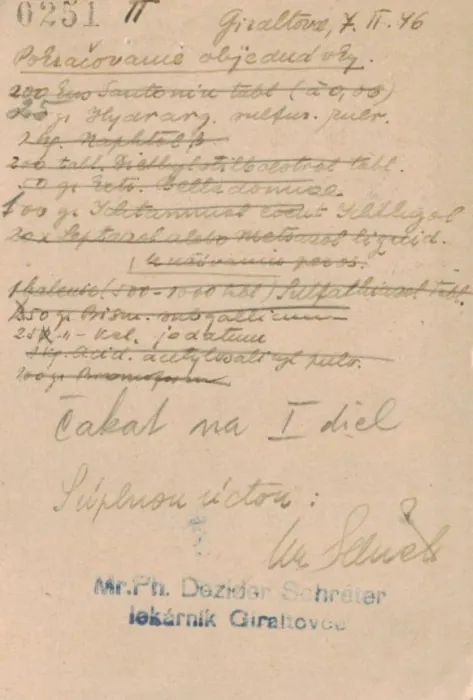 0251 II
Giraltovce, 7. II. 46
Pokračovanie objednávky.
200 Santonin tabl (à 0,05)
25 gr Hydrarg. sulfur. pulv.
2 kg. Naphtol β
200 tabl. Diethylstilboestrol tabl.
gr Extr. Belladonnae
100 gr Ichthyol
20 x Septazol alebo liquid.
per os.
(500-1000 tabl) Sulfathiazol tabl.
50 gr Bism. subgallicum
25 " Kal. jodatum
1 kg. Acid. acetylosalicyl pulv.
200 gr
Čakať na I diel
S úplnou úctou:
Mr.Ph. Dezider Schréter
lekárnik Giraltovce